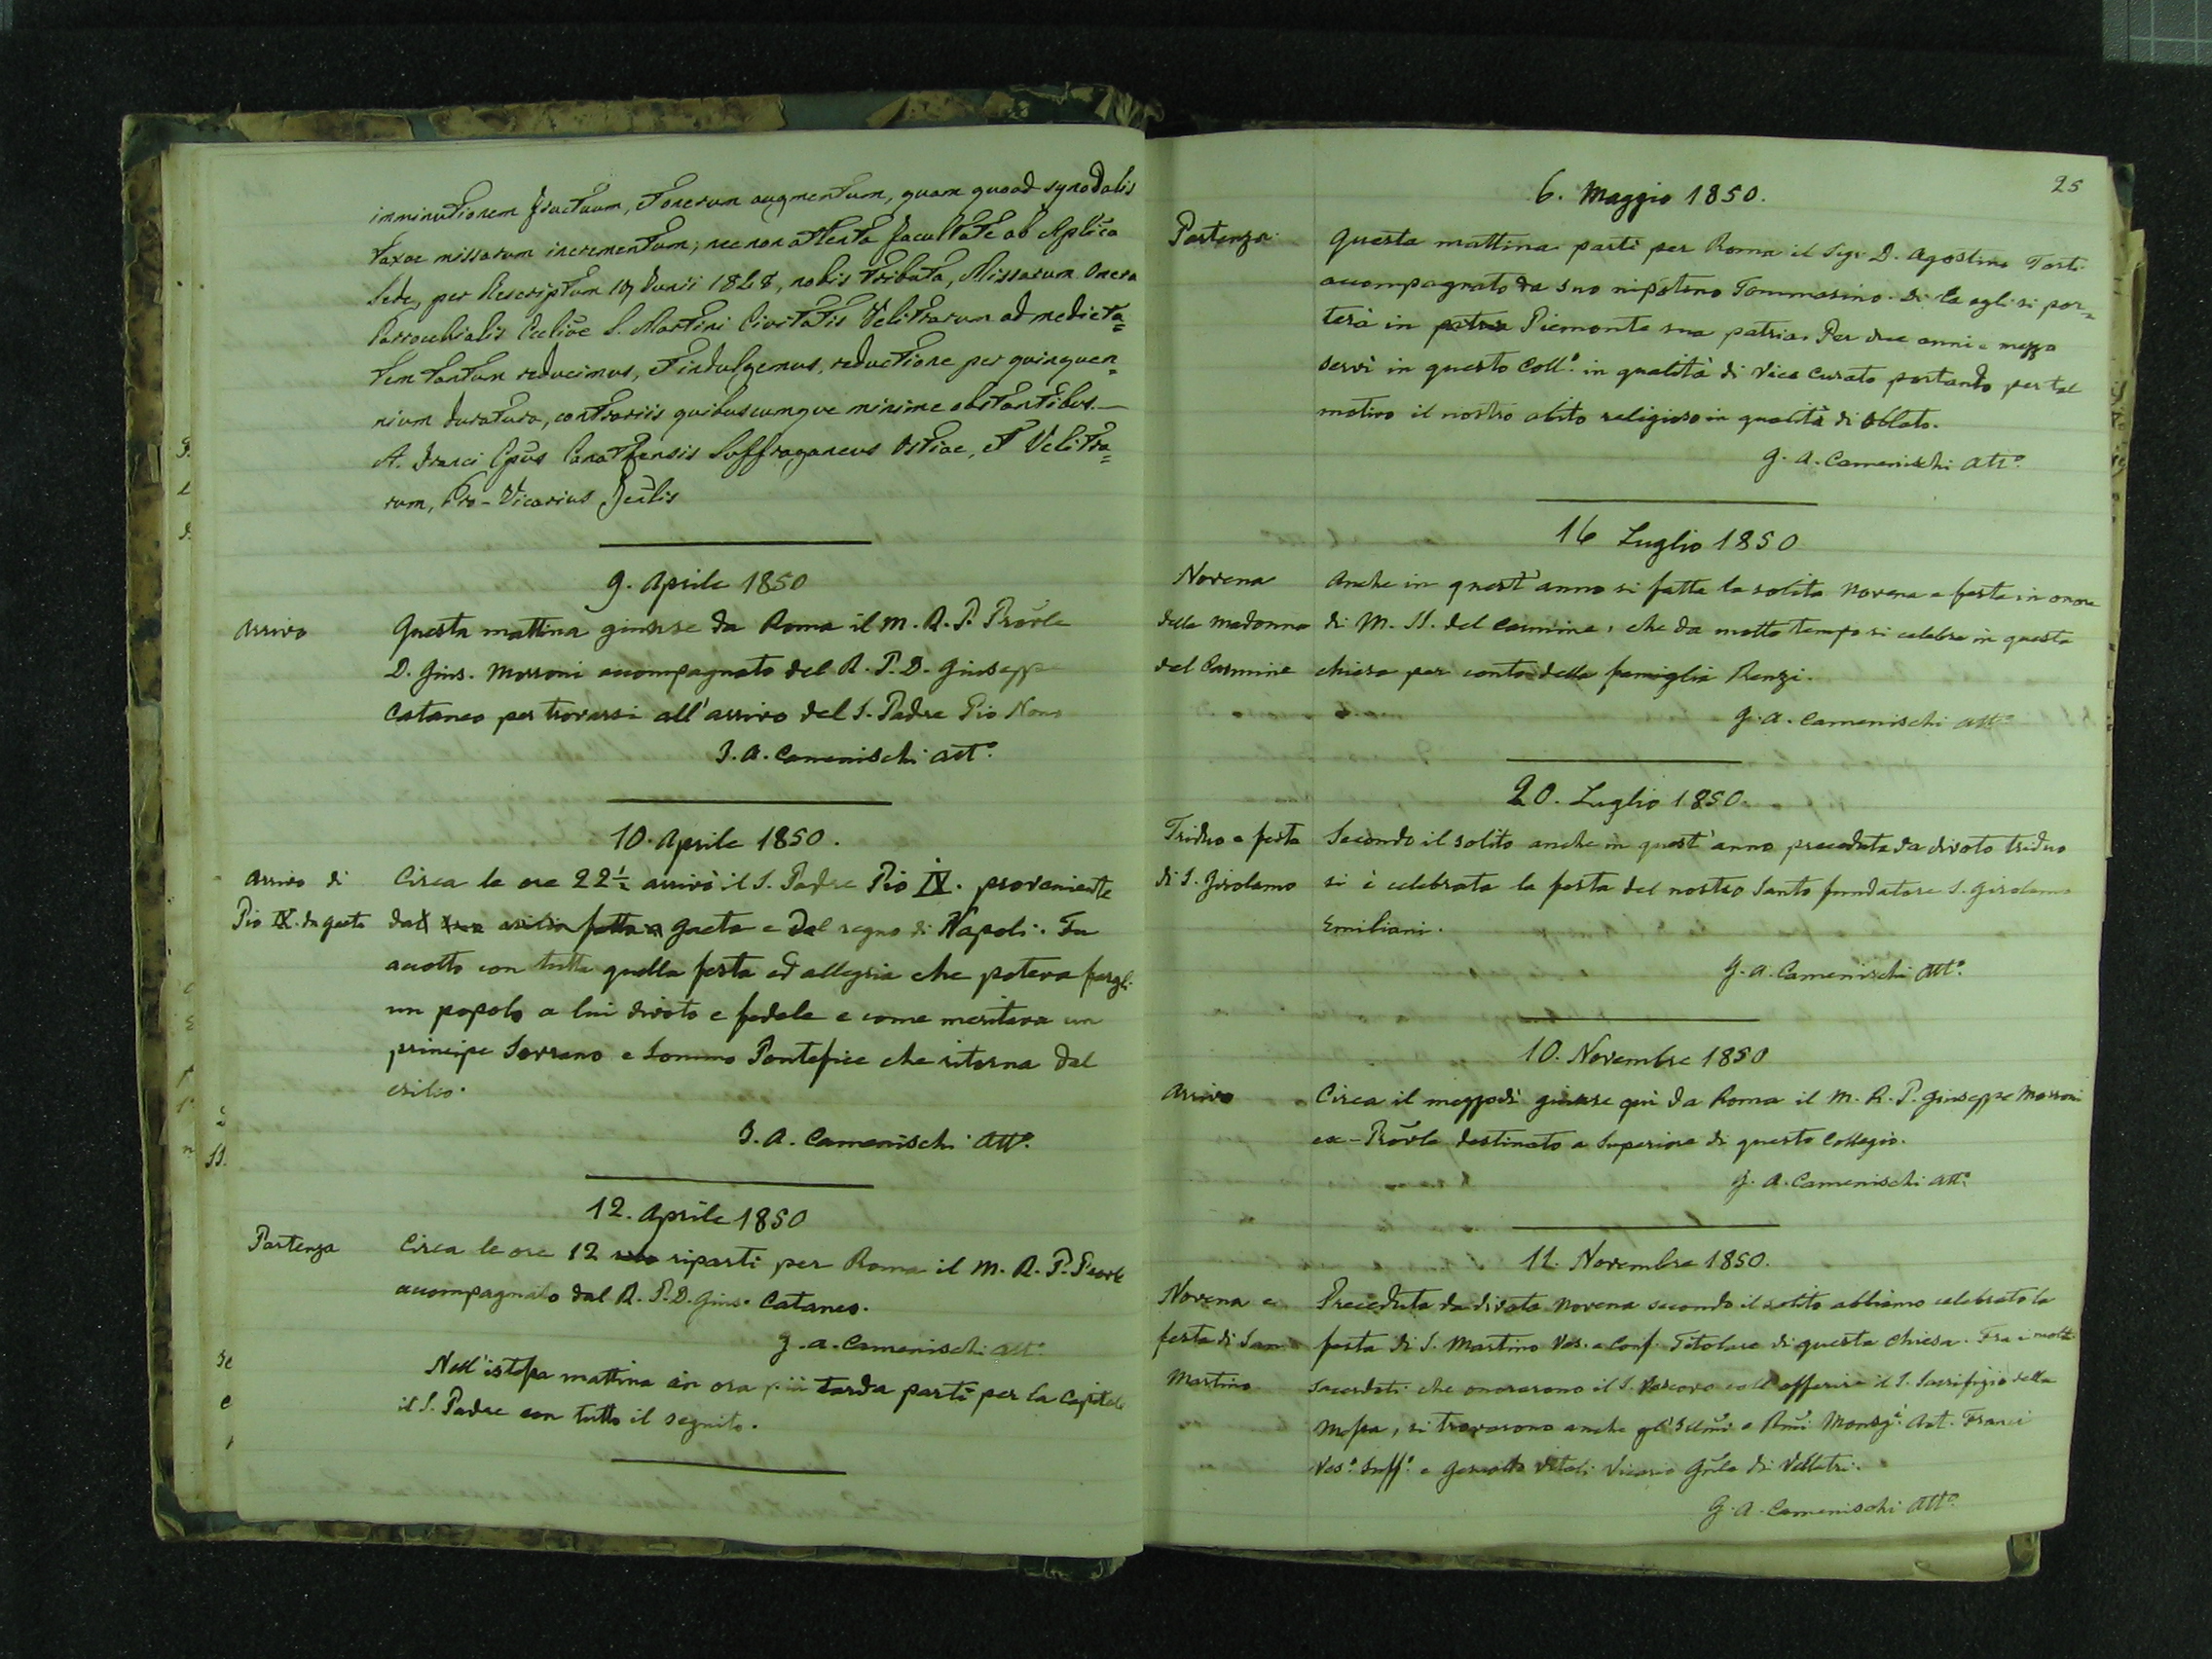 imminutionem fructuum, et onerum augmentum, quam quoad synodalis
taxae missarum incrementum; nec non attenta facultate ab Aplica
Sede, per Rescriptum 19 Junii 1848, nobis tributa, Missarum onera
Parrochialis Ecclive S. Martini Civitatis Velitrarum ad medieta=
tem tantum reducimus, et indulgemus, reductione per quinquen=
nium duratura, contrariis quibuscumque minime obstantibus.—
A. Franci Epus Suffraganeus Ostiae, et Velitra=
rum, Pro-Vicarius
9. Aprile 1850
Arrivo
Questa mattina giunse da Roma il M. R. P. Prõvle
D. Gius. Morroni accompagnato del R. P. D. Giuseppe
Cataneo per trovarsi all'arrivo del S. Padre Pio Nono
J. A. Camenischi Att.º
10. Aprile 1850.
Arrivo di
Pio IX. da Gaeta
Circa le ore 22½ arrivò il S. Padre Pio IX. proveniente
dal Gaeta e dal regno di Napoli. Fu
accotto con tutta quella festa ed allegria che poteva fargli
un popolo a lui divoto e fedele e come meritava un
principe Sovrano e Sommo Pontefice che ritorna dal
esilio.
J. A. Camenischi Att.º
12. Aprile 1850
Partenza
Circa le ore 12 ripartì per Roma il M. R. P. Provle
accompagnato dal R. P. D. Gius. Cataneo.
G. A. Camenischi Att.º
Nell'istessa mattina in ora più tarda partì per la Capitale
il S. Padre con tutto il seguito.
25
6. Maggio 1850.
Partenza
Questa mattina partì per Roma il Sigr D. Agostino Torti
accompagnato da suo nipotino Tommasino. Di la egli si por=
terà in Piemonte sua patria. Per due anni e mezzo
servì in questo Coll.º in qualità di Vice Curato portando per tal
motivo il nostro abito religioso in qualità di Oblato.
G. A. Camenischi Att.º
16 Luglio 1850
Novena
della Madonna
del Carmine
Anche in quest'anno si fatta la solita Novena e festa in onore
di M. SS. del Carmine, che da molto tempo si celebra in questa
chiesa per conto della famiglia Renzi.
G. A. Camenischi Att.º
20. Luglio 1850.
Triduo e festa
di S. Girolamo
Secondo il solito anche in quest'anno preceduta da divoto triduo
si è celebrata la festa del nostro Santo fundatore S. Girolamo
Emiliani.
G. A. Camenischi Att.º
10. Novembre 1850
Arrivo
Circa il mezzodì giunse qui da Roma il M. R. P. Giuseppe Morroni
ex-Prõvle destinato a Superiore di questo Collegio.
G. A. Camenischi Att.º
11. Novembre 1850.
Novena e
festa di San
Martino
Preceduta da divota Novena secondo il solito abbiamo celebrato la
festa di S. Martino Ves. e Conf. Titolare di questa Chiesa. Fra i molti
Sacerdoti che onorarono il S. Vescovo coll'offerire il S. Sacrifizio della
Messa, si trovarono anche gl'Illmi e Rmi Monsgi. Ant. Franci
Ves.º Suff.º e Vitali Vicario Gnle di Velletri.
G. A. Camenischi Att.º